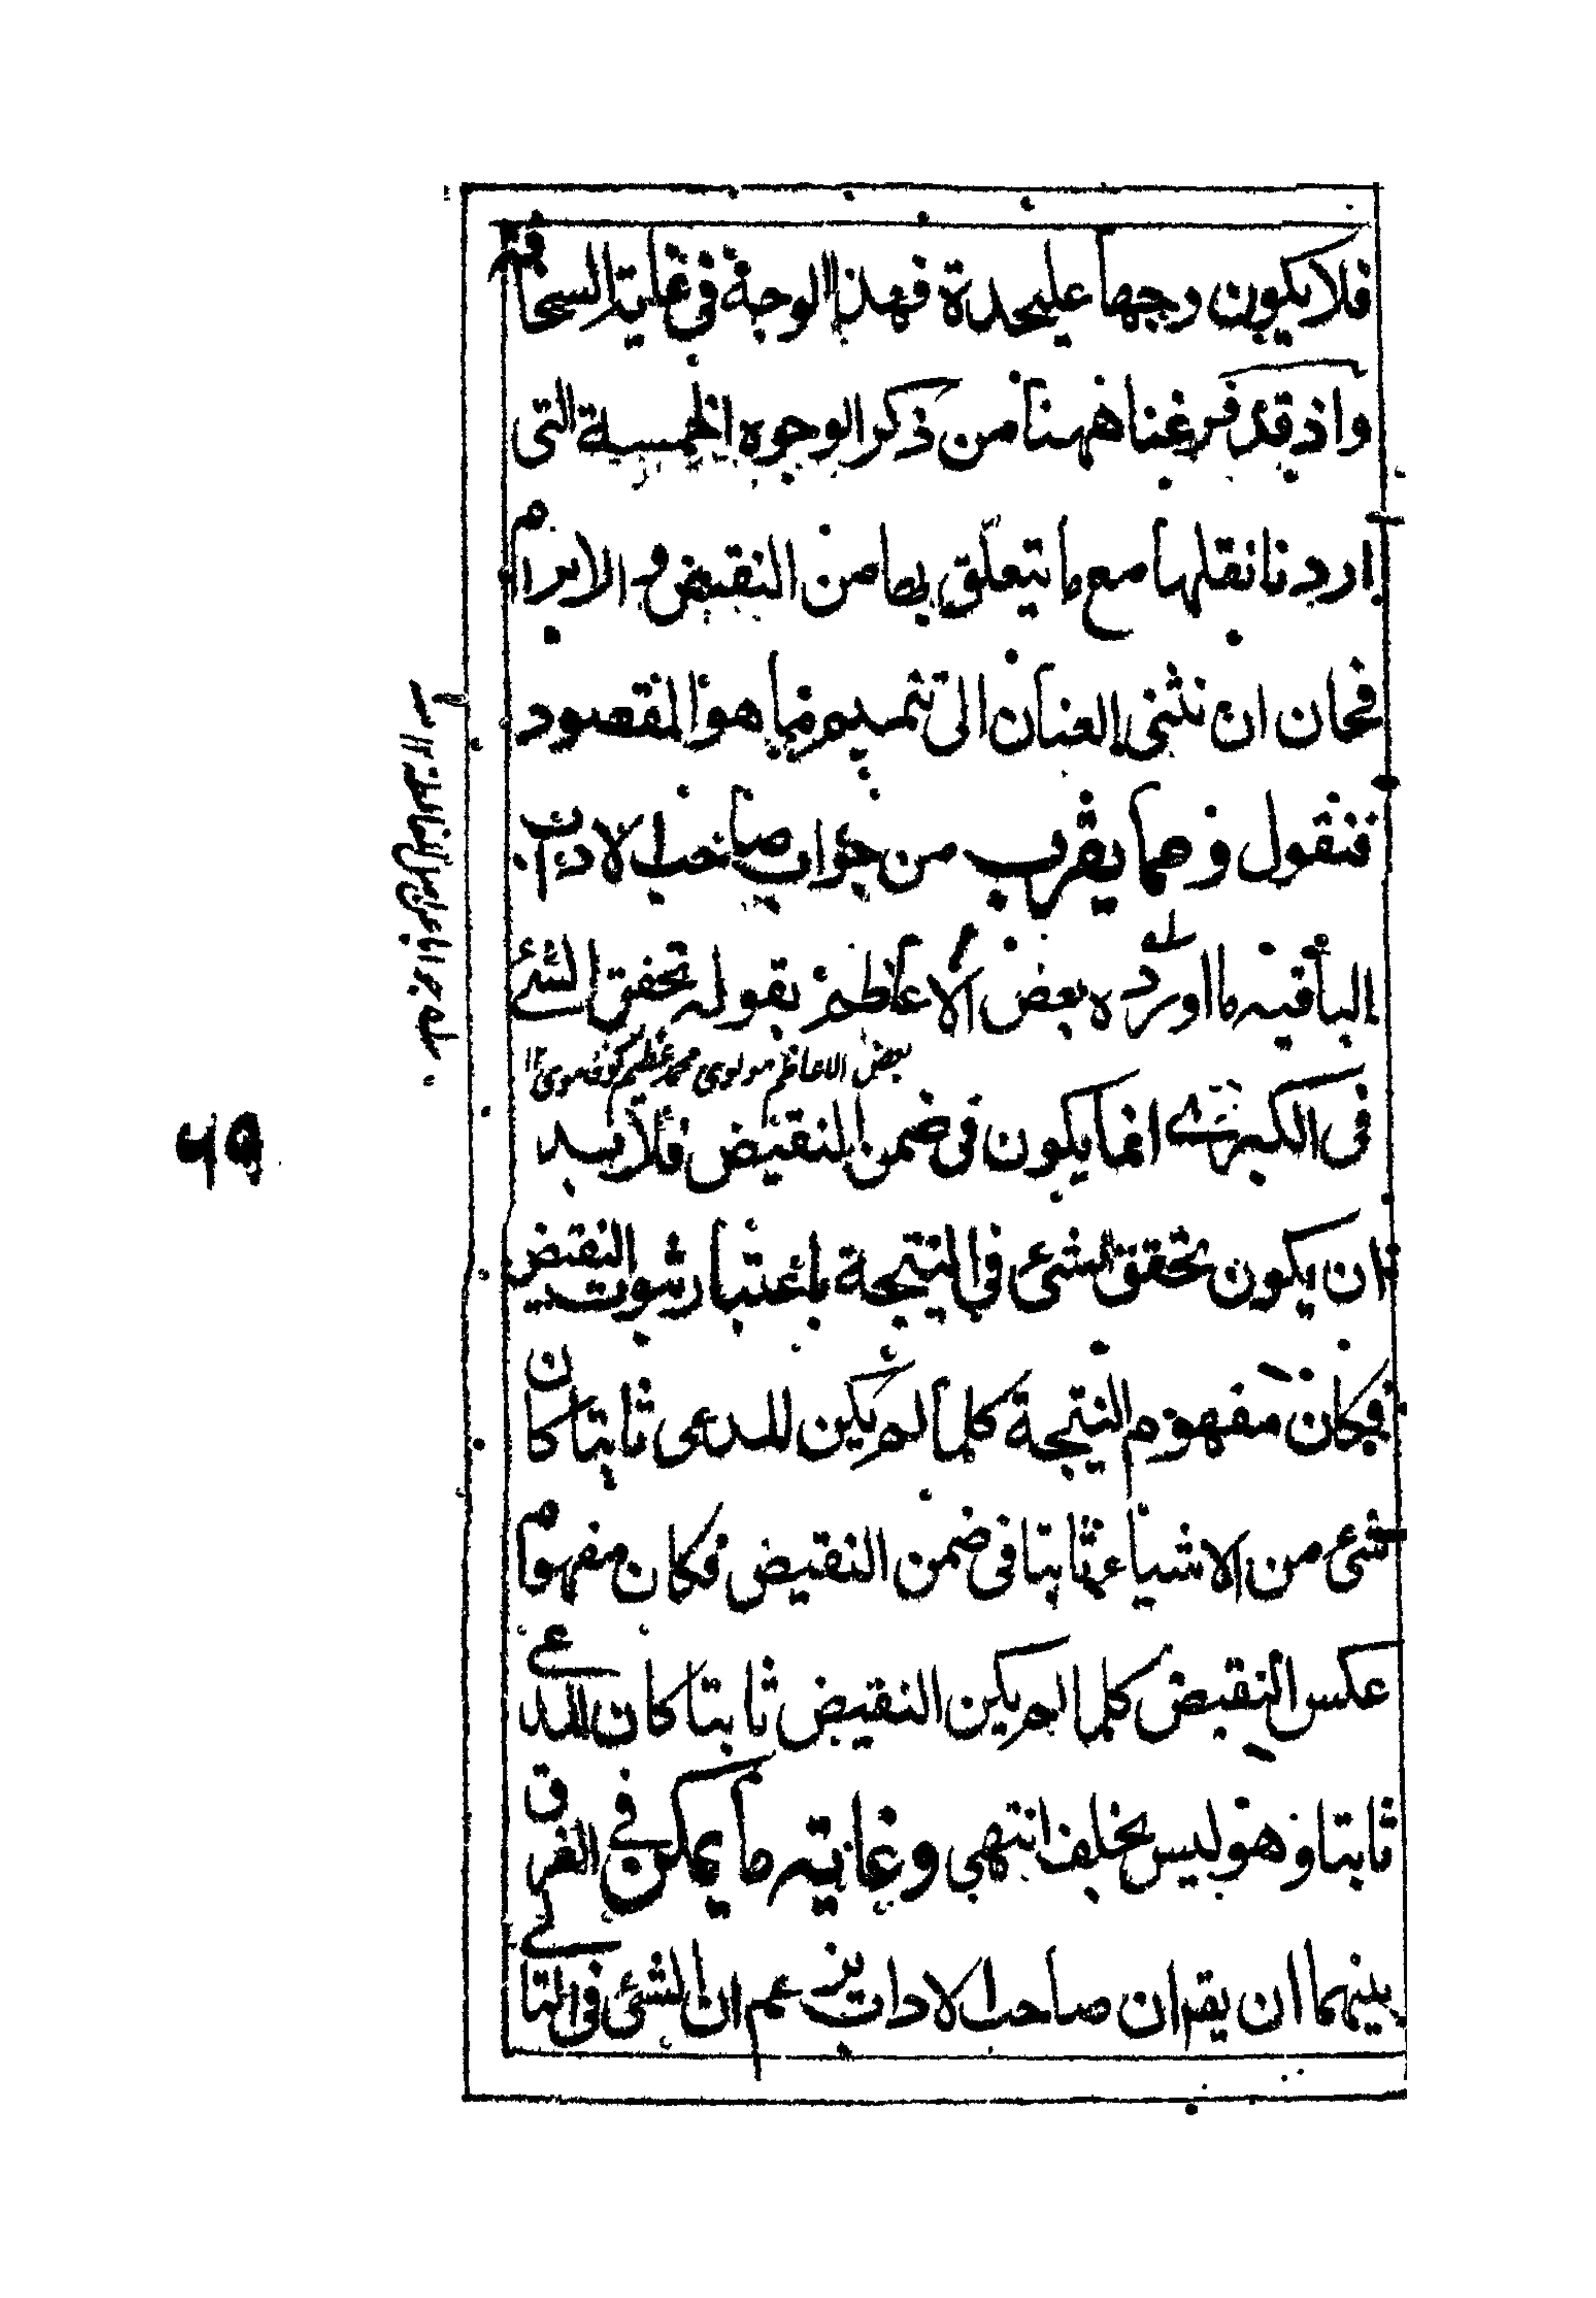 فلا يكون وجها عليحدة فهذا الوجه في غاية السخافة
واذ قد فرغنا ههنا من ذكر الوجوه الخمسية التي
اردنا نقلها مع ما يتعلق بها من النقيض و الابرام
فحان ان نثني العنان الى تتميم ما هو المقصود
فنقول و مما يقرب من جواب صاحب الاداب
الباقيه ما اورده بعض الاعاظم بقوله تحقق الشئ
بعض الاعاظم مولوي محمد عظيم كوفاموى ۱۲
في الكبرے انما يكون في ضمن النقيض فلا بد
ان يكون تحقق الشئ في النتيجة باعتبار ثبوت النقيض
فكان مفهوم النتيجة كلما لم يكن المدعى ثابتا كان
شئ من الاشياء ثابتا في ضمن النقيض فكان مفهوم
عكس النقيض كلما لم يكن النقيض ثابتا كان المدعے
ثابتا و هو ليس بخلف انتهى و غايته ما يمكن في الفرق
بينهما ان يقر ان صاحب الاداب يزعم ان الشئ في التالے
۶۵